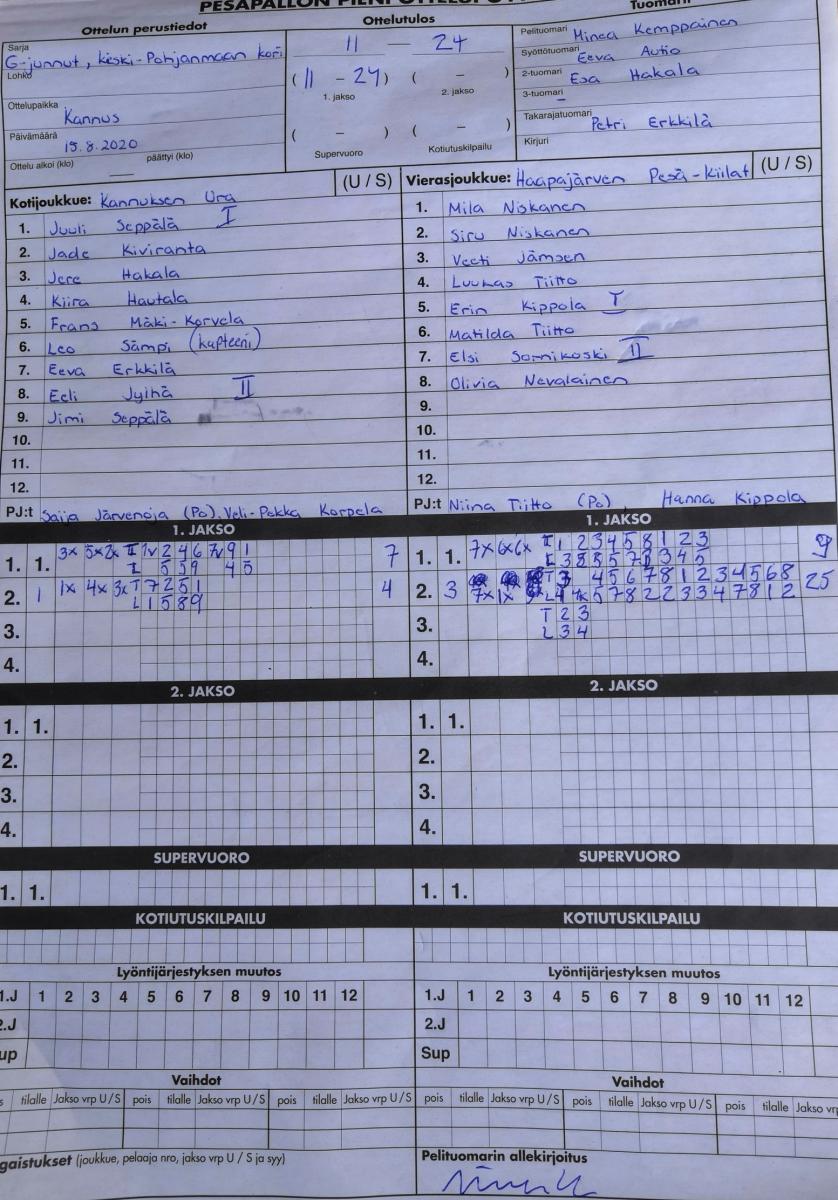 Ottelun perustiedot
Sarja
G-junnut, keski-Pohjanmaan kori
Lohko
Ottelupaikka
Kannus
Päivämäärä
15.8.2020
Ottelu alkoi (klo) päättyi (klo)
Ottelutulos
11 – 24
(11 – 24) ( – )
1. jakso 2. jakso
( – ) ( – )
Supervuoro Kotiutuskilpailu
Pelituomari Minea Kemppainen
Syöttötuomari Eeva Autio
2-tuomari Esa Hakala
3-tuomari –
Takarajatuomari
Petri Erkkilä
Kirjuri
Kotijoukkue: Kannuksen Ura (U / S)
1. Juuli Seppälä I
2. Jade Kiviranta
3. Jere Hakala
4. Kiira Hautala
5. Frans Mäki-Korvela
6. Leo Sämpi (kapteeni)
7. Eeva Erkkilä
8. Eeli Jyihä II
9. Jimi Seppälä
10.
11.
12.
PJ:t Saija Järvenoja (Po). Veli-Pekka Korpela
Vierasjoukkue: Haapajärven Pesä-Kiilat (U / S)
1. Mila Niskanen
2. Siru Niskanen
3. Veeti Jämsen
4. Luukas Tiitto
5. Erin Kippola I
6. Matilda Tiitto
7. Elsi Sornikoski II
8. Olivia Nevalainen
9.
10.
11.
12.
PJ:t Niina Tiitto (Po) Hanna Kippola
1. JAKSO
1. 1. 3x 5x 2x 7
559 45
2. 1 1x 4x 3x T 7251 4
L 1589
3.
4.
1. JAKSO
1. 1. 7x 6x 6x 1 2 3 4 5 8 1 2 3 9
2. 3 4 5 6 7 8 1 2 3 4 5 6 8 25
7x 1x 5 7 8 2 2 3 3 4 7 8 1 2
3. T 2 3
L 3 4
4.
2. JAKSO
1. 1.
2.
3.
4.
2. JAKSO
1. 1.
2.
3.
4.
SUPERVUORO
1. 1.
SUPERVUORO
1. 1.
KOTIUTUSKILPAILU
KOTIUTUSKILPAILU
Lyöntijärjestyksen muutos
1.J 1 2 3 4 5 6 7 8 9 10 11 12
2.J
up
Lyöntijärjestyksen muutos
1.J 1 2 3 4 5 6 7 8 9 10 11 12
2.J
Sup
Vaihdot
s tilalle Jakso vrp U / S pois tilalle Jakso vrp U / S pois tilalle Jakso vrp U / S
Vaihdot
pois tilalle Jakso vrp U / S pois tilalle Jakso vrp U / S pois tilalle Jakso vr
gaistukset (joukkue, pelaaja nro, jakso vrp U / S ja syy)
Pelituomarin allekirjoitus